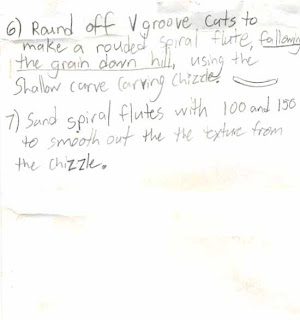 6) Round off V groove Cuts to
make a rouded spiral flute, following
the grain down hill, using the
Shallow carve Carving chizzle.
7) Sand spiral flutes with 100 and 150
to smooth out the the texture from
the chizzle.